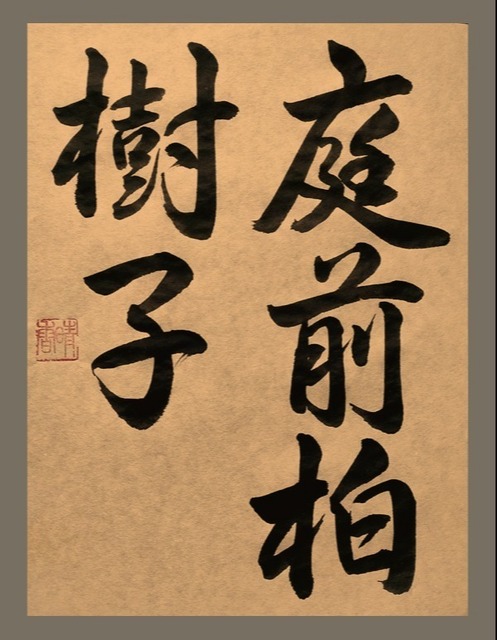 庭前柏
樹子